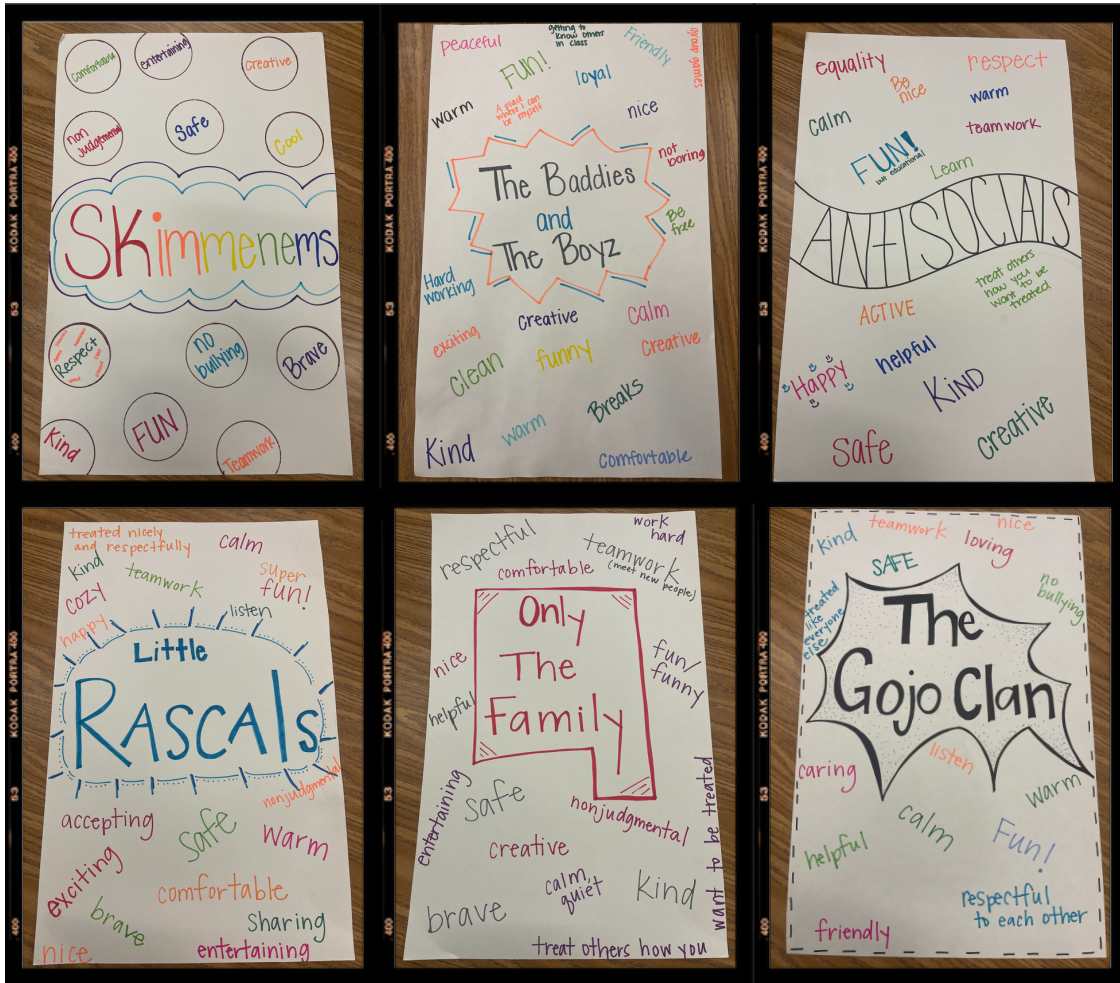 KODAK PORTRA 400
53
400
comfortable
entertaining
creative
non
judgemental
Safe
Cool
SKimmenems
Respect
no
bullying
Brave
Kind
FUN
Teamwork
KODAK PORTRA 400
53
400
peaceful
getting to
know others
in class
Friendly
group games
FUN!
loyal
warm
A place
where I can
be myself
nice
not
boring
The Baddies
and
The Boyz
Be
free
Hard
working
creative
calm
exciting
funny
creative
clean
Breaks
warm
Kind
comfortable
KODAK PORTRA 400
53
400
equality
Be
nice
respect
warm
calm
teamwork
FUN!
but educational
Learn
ANTISOCIALS
treat others
how you
want to be
treated
ACTIVE
helpful
Happy
KIND
creative
Safe
KODAK PORTRA 400
53
400
treated nicely
and respectfully
calm
kind
teamwork
super
fun!
cozy
listen
happy
Little
RASCAls
nonjudgmental
accepting
safe
warm
exciting
comfortable
brave
Sharing
nice
entertaining
KODAK PORTRA 400
53
400
respectful
work
hard
teamwork
(meet new people)
comfortable
Only
The
Family
nice
fun/
funny
helpful
entertaining
Safe
nonjudgmental
creative
calm,
quiet
Kind
brave
treat others how you
want to be treated
KODAK PORTRA 400
53
400
kind
teamwork
nice
loving
SAFE
no
bullying
treated
like
everyone
else
The
Gojo Clan
listen
caring
warm
calm
Fun!
helpful
respectful
to each other
friendly